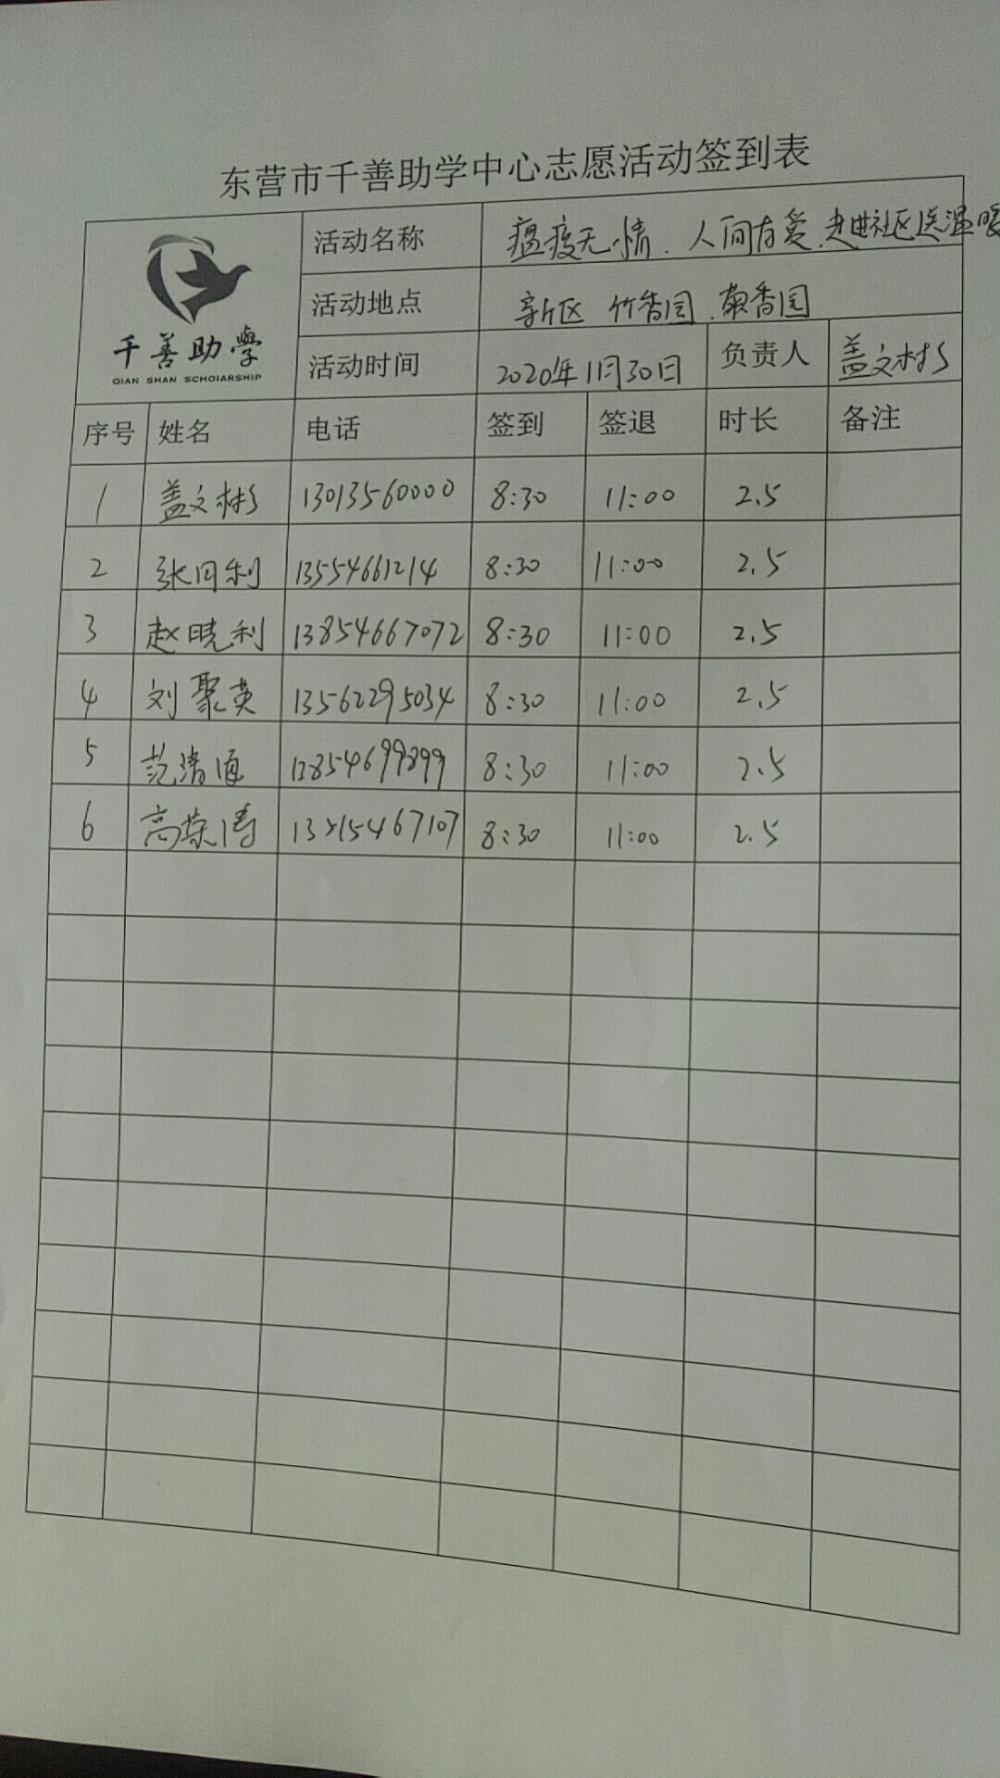 东营市千善助学中心志愿活动签到表
千善助學
QIAN SHAN SCHOIARSHIP
活动名称 瘟疫无情.人间有爱.走进社区送温暖
活动地点 新区 竹香园.菊香园
活动时间 2020年1月30日 负责人 盖文彬
序号 姓名 电话 签到 签退 时长 备注
1 盖文彬 13013560000 8:30 11:00 2.5
2 张同利 13554661214 8:30 11:00 2.5
3 赵晓利 13854667072 8:30 11:00 2.5
4 刘聚英 13562295034 8:30 11:00 2.5
5 范清 13854699899 8:30 11:00 2.5
6 高荣涛 8:30 11:00 2.5